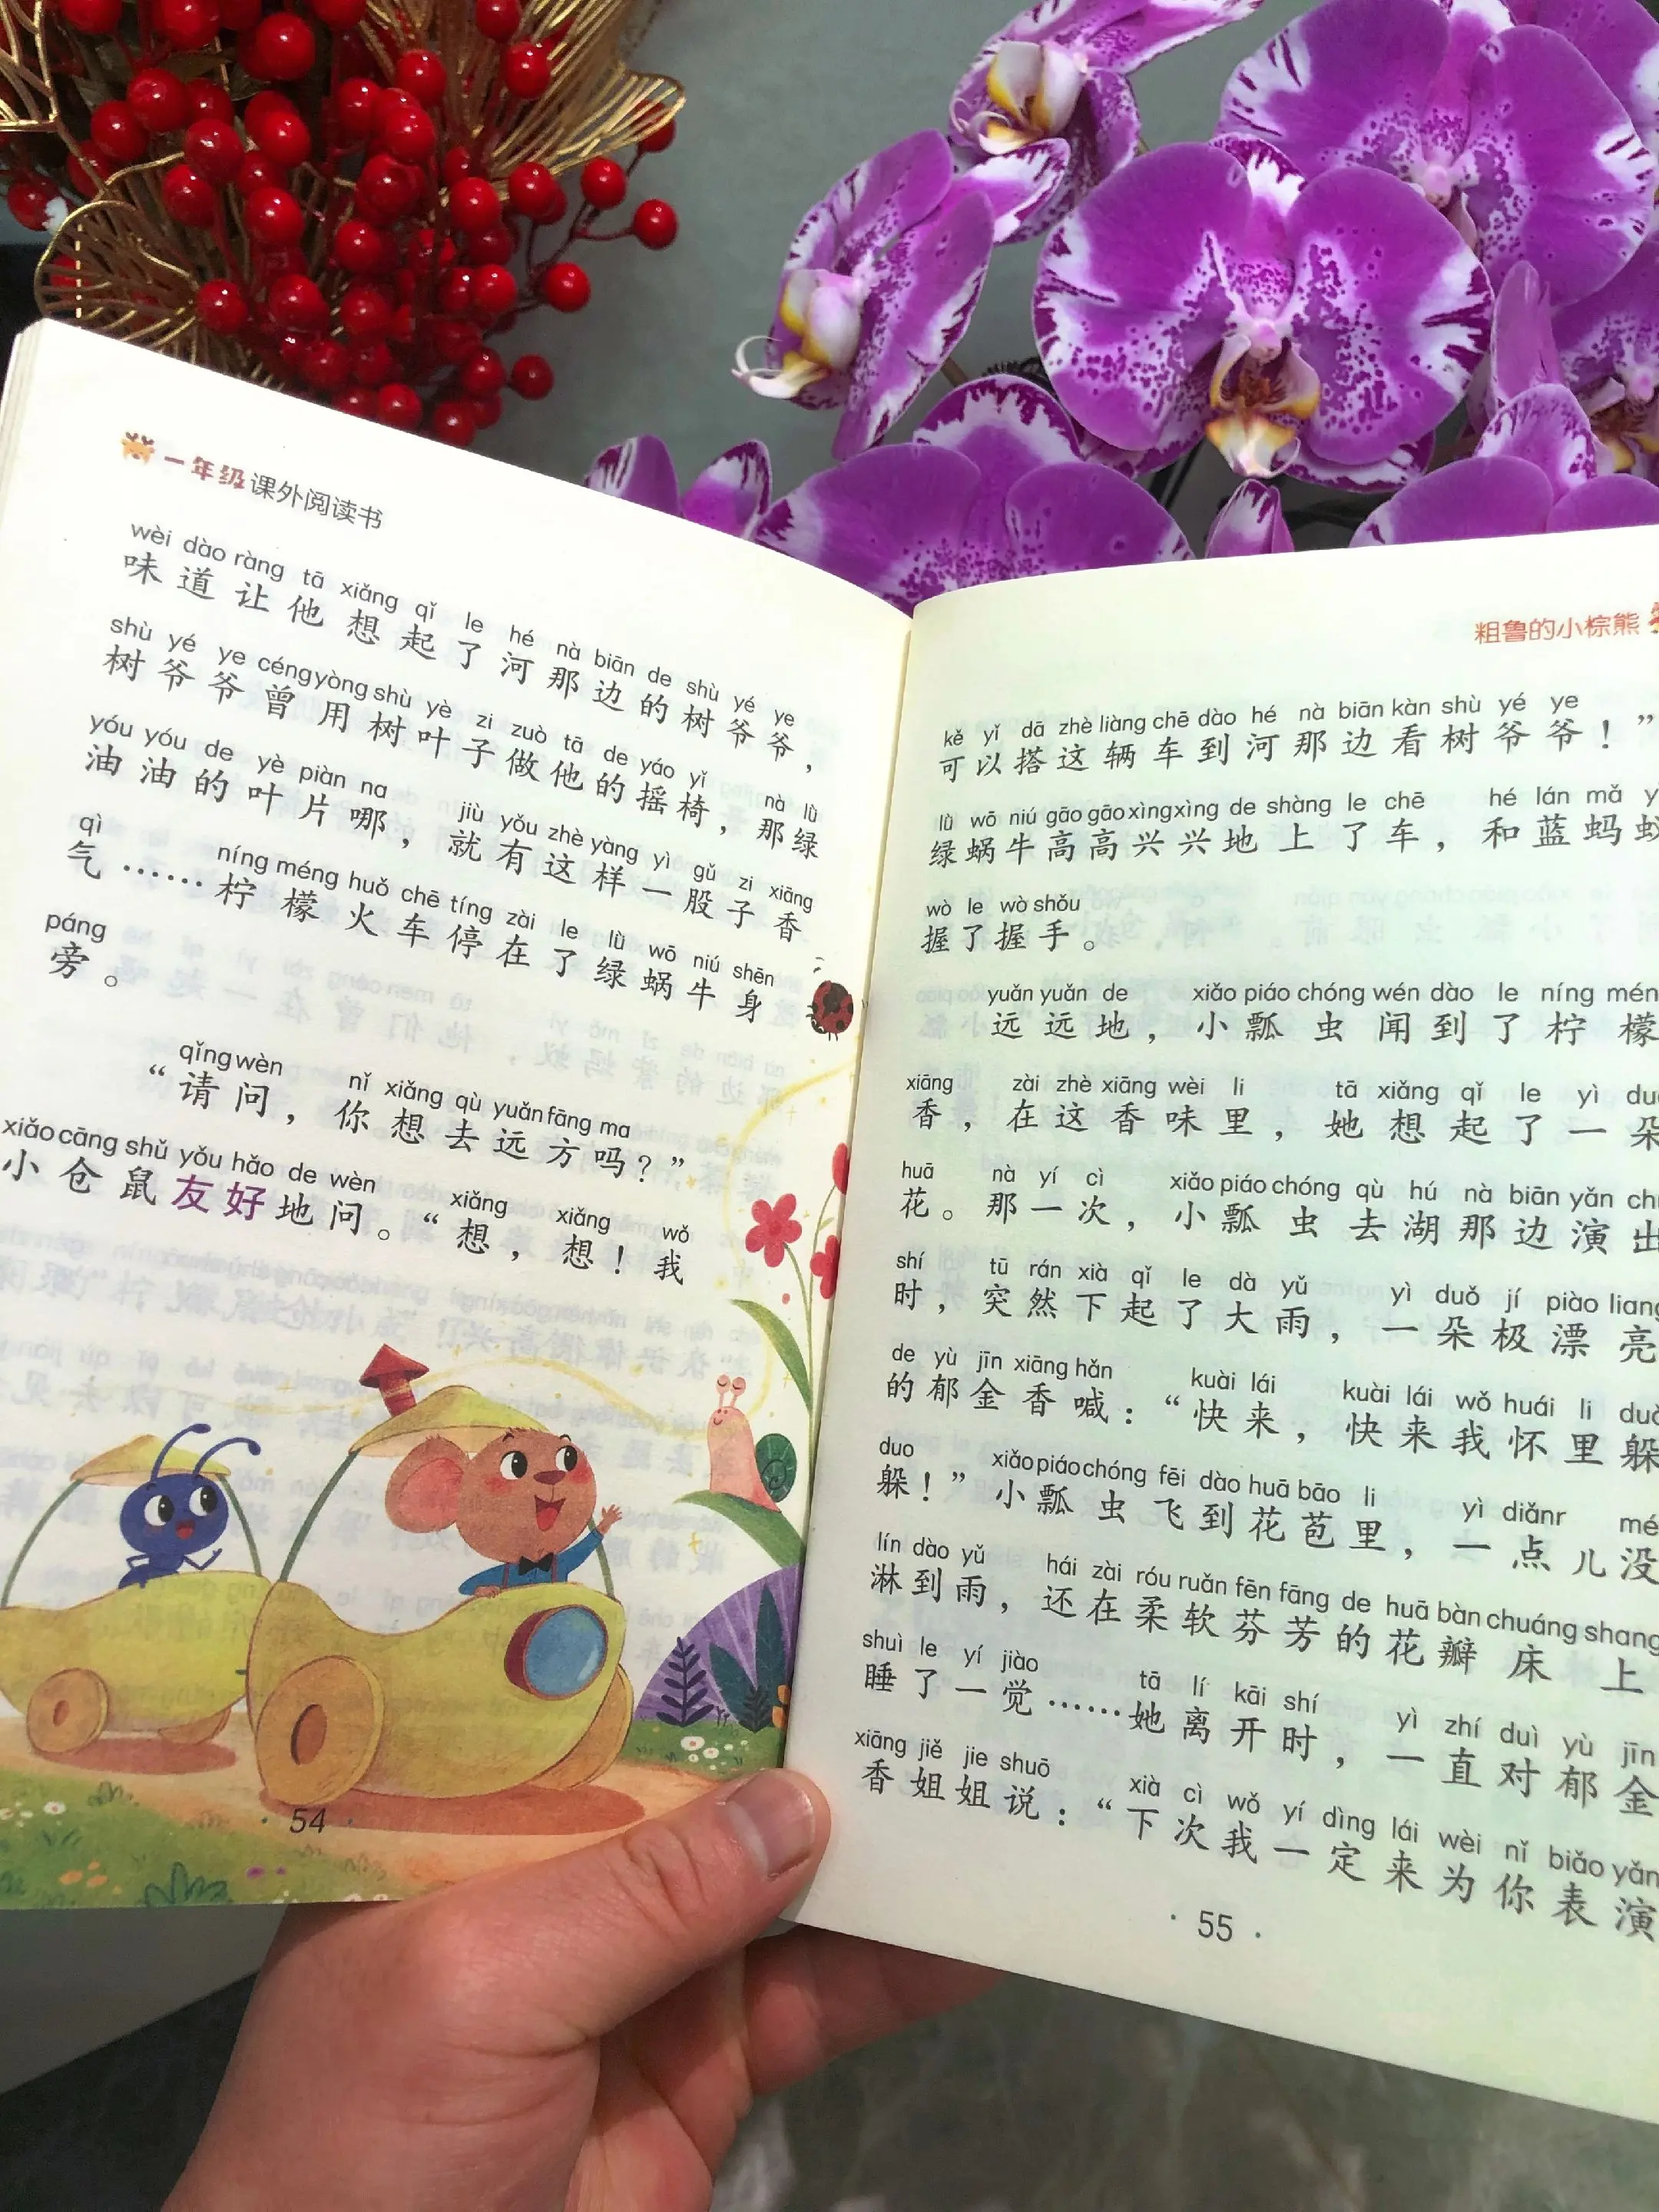 一年级课外阅读书
wèi dào ràng tā xiǎng qǐ le hé nà biān de shù yé ye
味道让他想起了河那边的树爷爷，
shù yé ye céng yòng shù yè zi zuò tā de yáo yǐ nà lǜ
树爷爷曾用树叶子做他的摇椅，那绿
yóu yóu de yè piàn na jiù yǒu zhè yàng yì gǔ zi xiāng
油油的叶片哪，就有这样一股子香
qì níng méng huǒ chē tíng zài le lǜ wō niú shēn
气……柠檬火车停在了绿蜗牛身
páng
旁。
qǐng wèn nǐ xiǎng qù yuǎn fāng ma
“请问，你想去远方吗？”
xiǎo cāng shǔ yǒu hǎo de wèn xiǎng xiǎng wǒ
小仓鼠友好地问。“想，想！我
· 54 ·
粗鲁的小棕熊
kě yǐ dā zhè liàng chē dào hé nà biān kàn shù yé ye
可以搭这辆车到河那边看树爷爷！”
lǜ wō niú gāo gāo xìng xìng de shàng le chē hé lán mǎ
绿蜗牛高高兴兴地上了车，和蓝蚂蚁
wò le wò shǒu
握了握手。
yuǎn yuǎn de xiǎo piáo chóng wén dào le níng mén
远远地，小瓢虫闻到了柠檬
xiāng zài zhè xiāng wèi li tā xiǎng qǐ le yì
香，在这香味里，她想起了一朵
huā nà yí cì xiǎo piáo chóng qù hú nà biān yǎn
花。那一次，小瓢虫去湖那边演出
shí tū rán xià qǐ le dà yǔ yì duǒ jí piào liang
时，突然下起了大雨，一朵极漂亮
de yù jīn xiāng hǎn kuài lái kuài lái wǒ huái li
的郁金香喊：“快来，快来我怀里躲
duo xiǎo piáo chóng fēi dào huā bāo li yì diǎnr
躲！”小瓢虫飞到花苞里，一点儿没
lín dào yǔ hái zài róu ruǎn fēn fāng de huā bàn chuáng shang
淋到雨，还在柔软芬芳的花瓣床上
shuì le yí jiào tā lí kāi shí yì zhí duì yù jīn
睡了一觉……她离开时，一直对郁金
xiāng jiě jie shuō xià cì wǒ yí dìng lái wèi nǐ biǎo yǎn
香姐姐说：“下次我一定来为你表演
· 55 ·